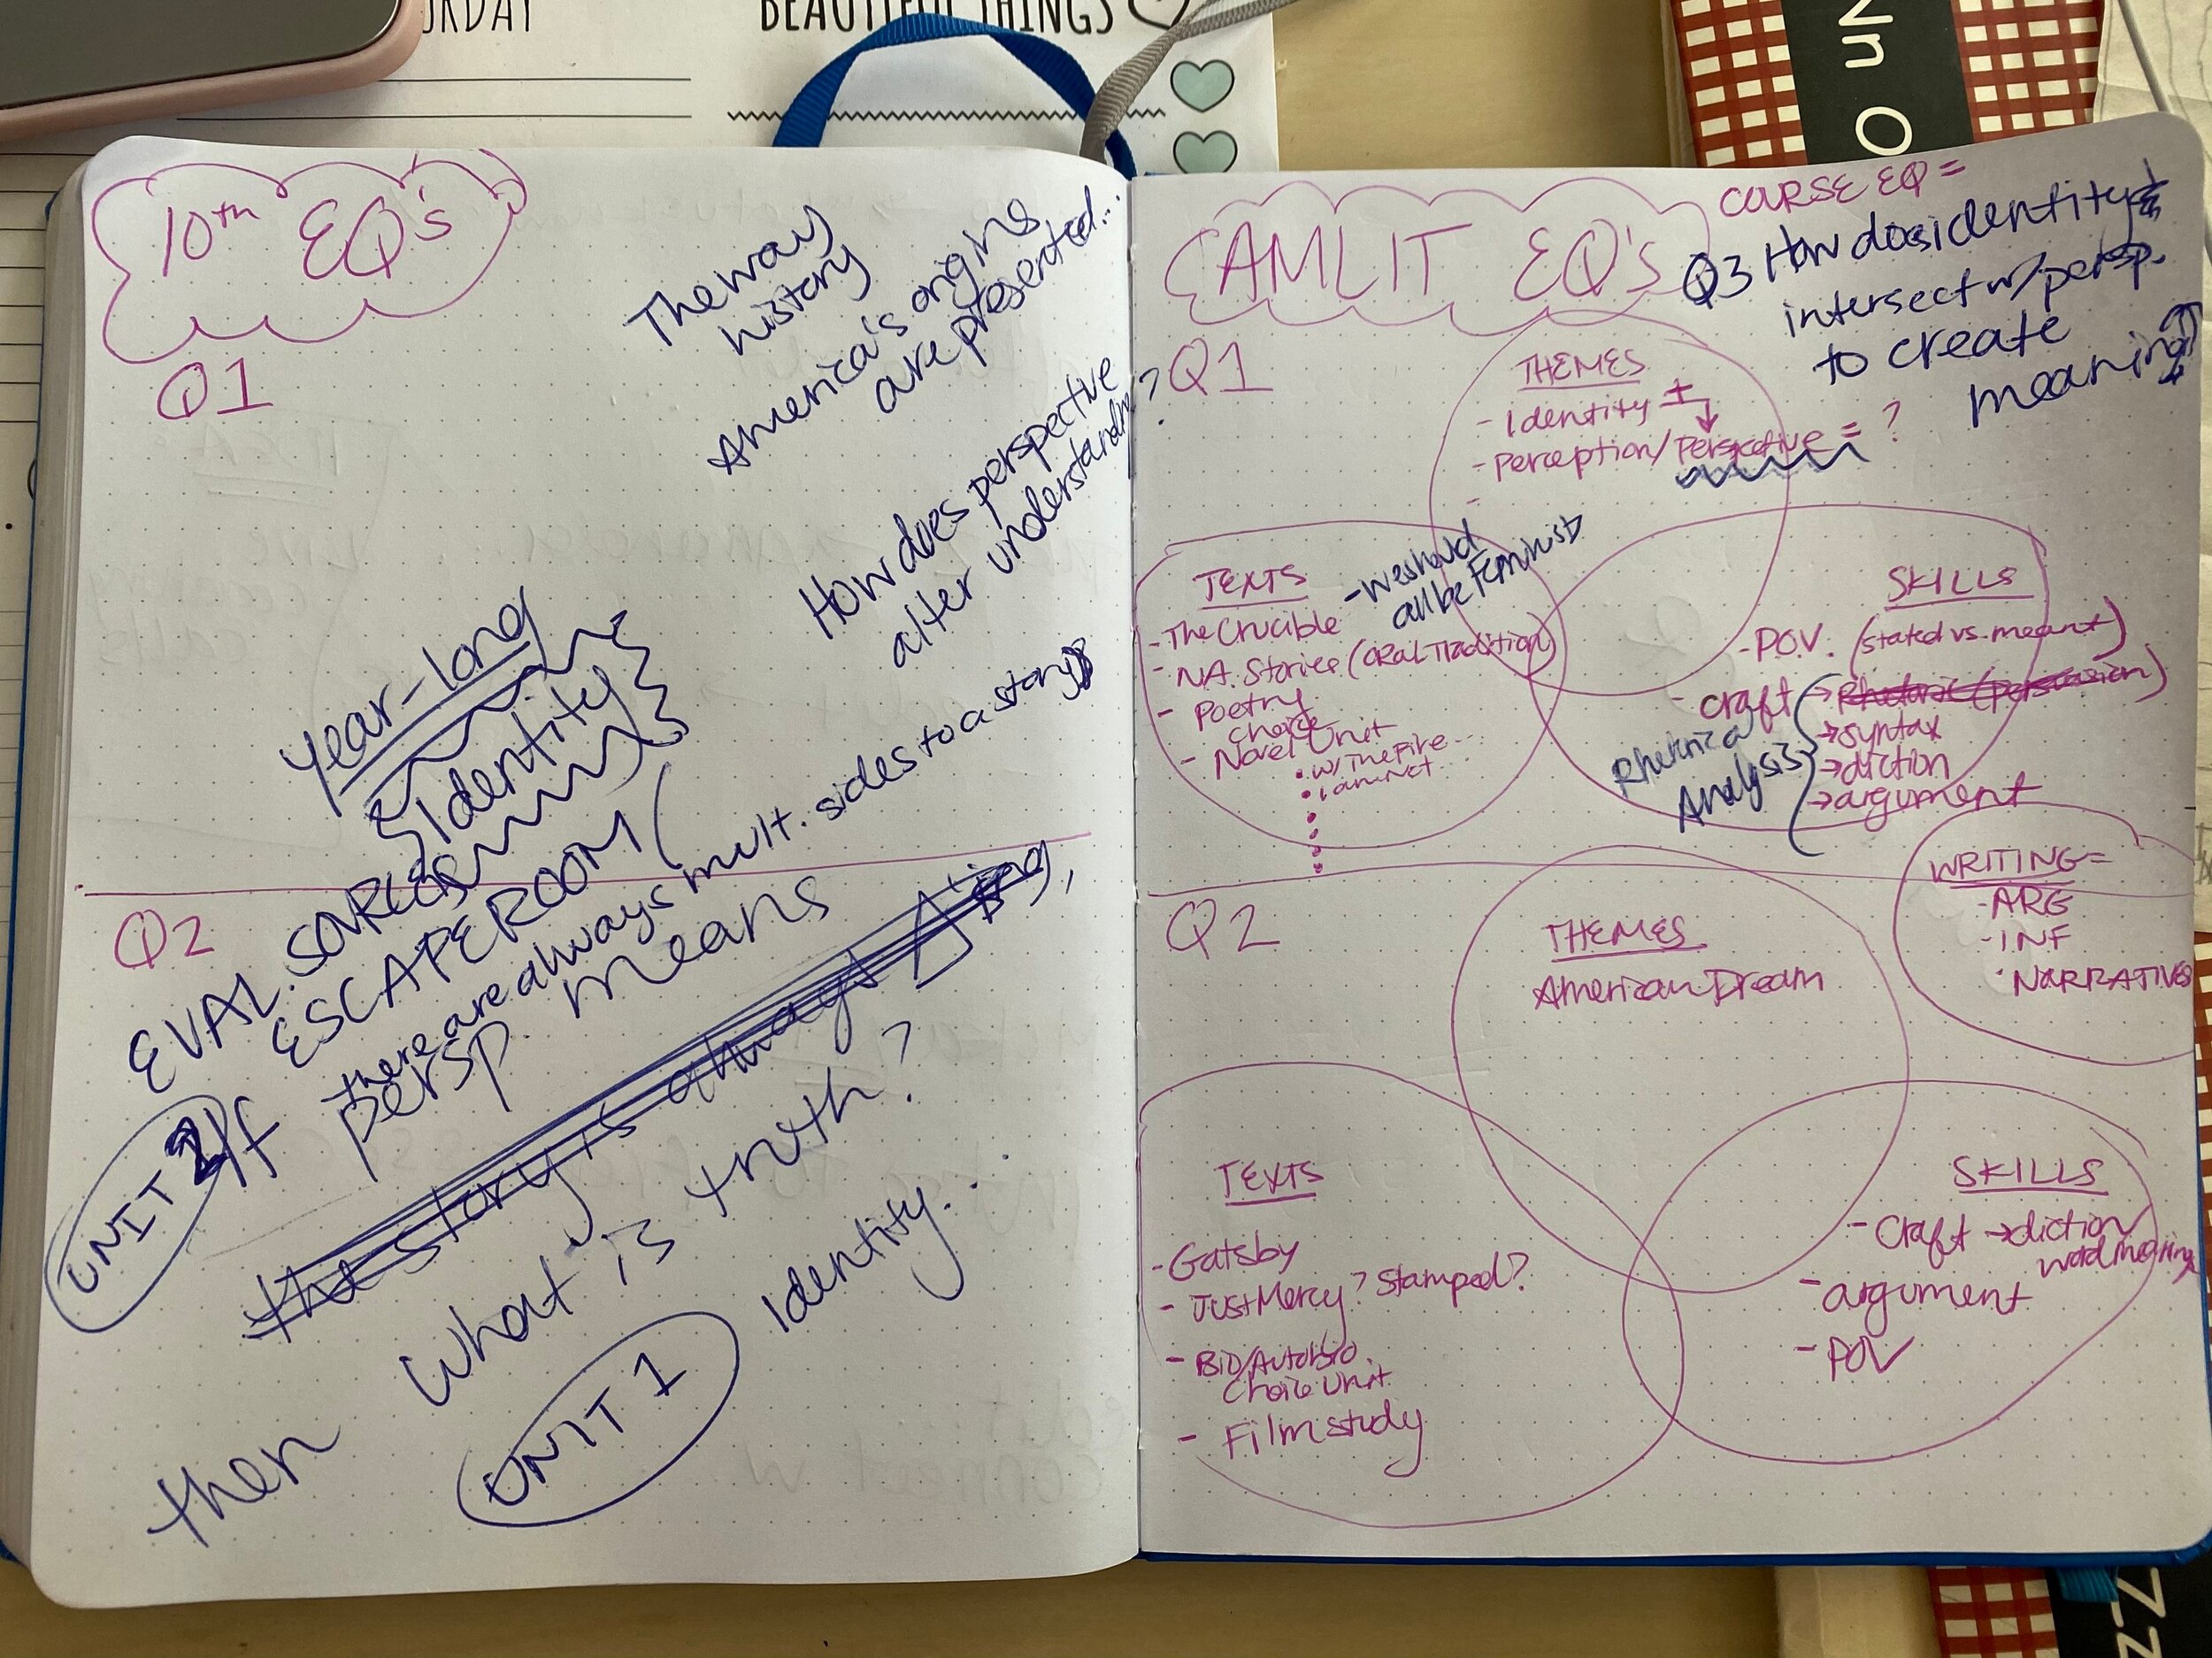 URDAY
BEAUTIFUL THINGS
Nn O
10th EQ's
Q1
The way
history
America's origins
are presented...
How does perspective
alter understanding?
year-long
Identity
EVAL. SOURCES
ESCAPE ROOM (
Q2
UNIT 2
If there are always mult. sides to a story,
persp. means
the story is always
then what is truth?
UNIT 1 Identity...
AMLIT EQ's
COURSE EQ =
Q3 How does identity
intersect w/ persp.
to create
meaning
Q1
THEMES
- Identity +
- Perception/Perspective = ?
-
TEXTS
- We should
all be Feminists
- The Crucible
- N.A. Stories (Oral Tradition)
- Poetry
- Novel choice Unit
• w/ The Fire...
• I am Not...
SKILLS
- P.O.V. (stated vs. meant)
- craft → Rhetoric (persuasion)
→ syntax
→ diction
→ argument
Analysis
WRITING =
- ARG
- INF
• NARRATIVES
Q2
THEMES
American Dream
TEXTS
- Gatsby
- Just Mercy? Stamped?
- Bio/Autobio
Choice Unit
- Film study
SKILLS
- Craft → diction
word meaning
- argument
- POV
ZZ